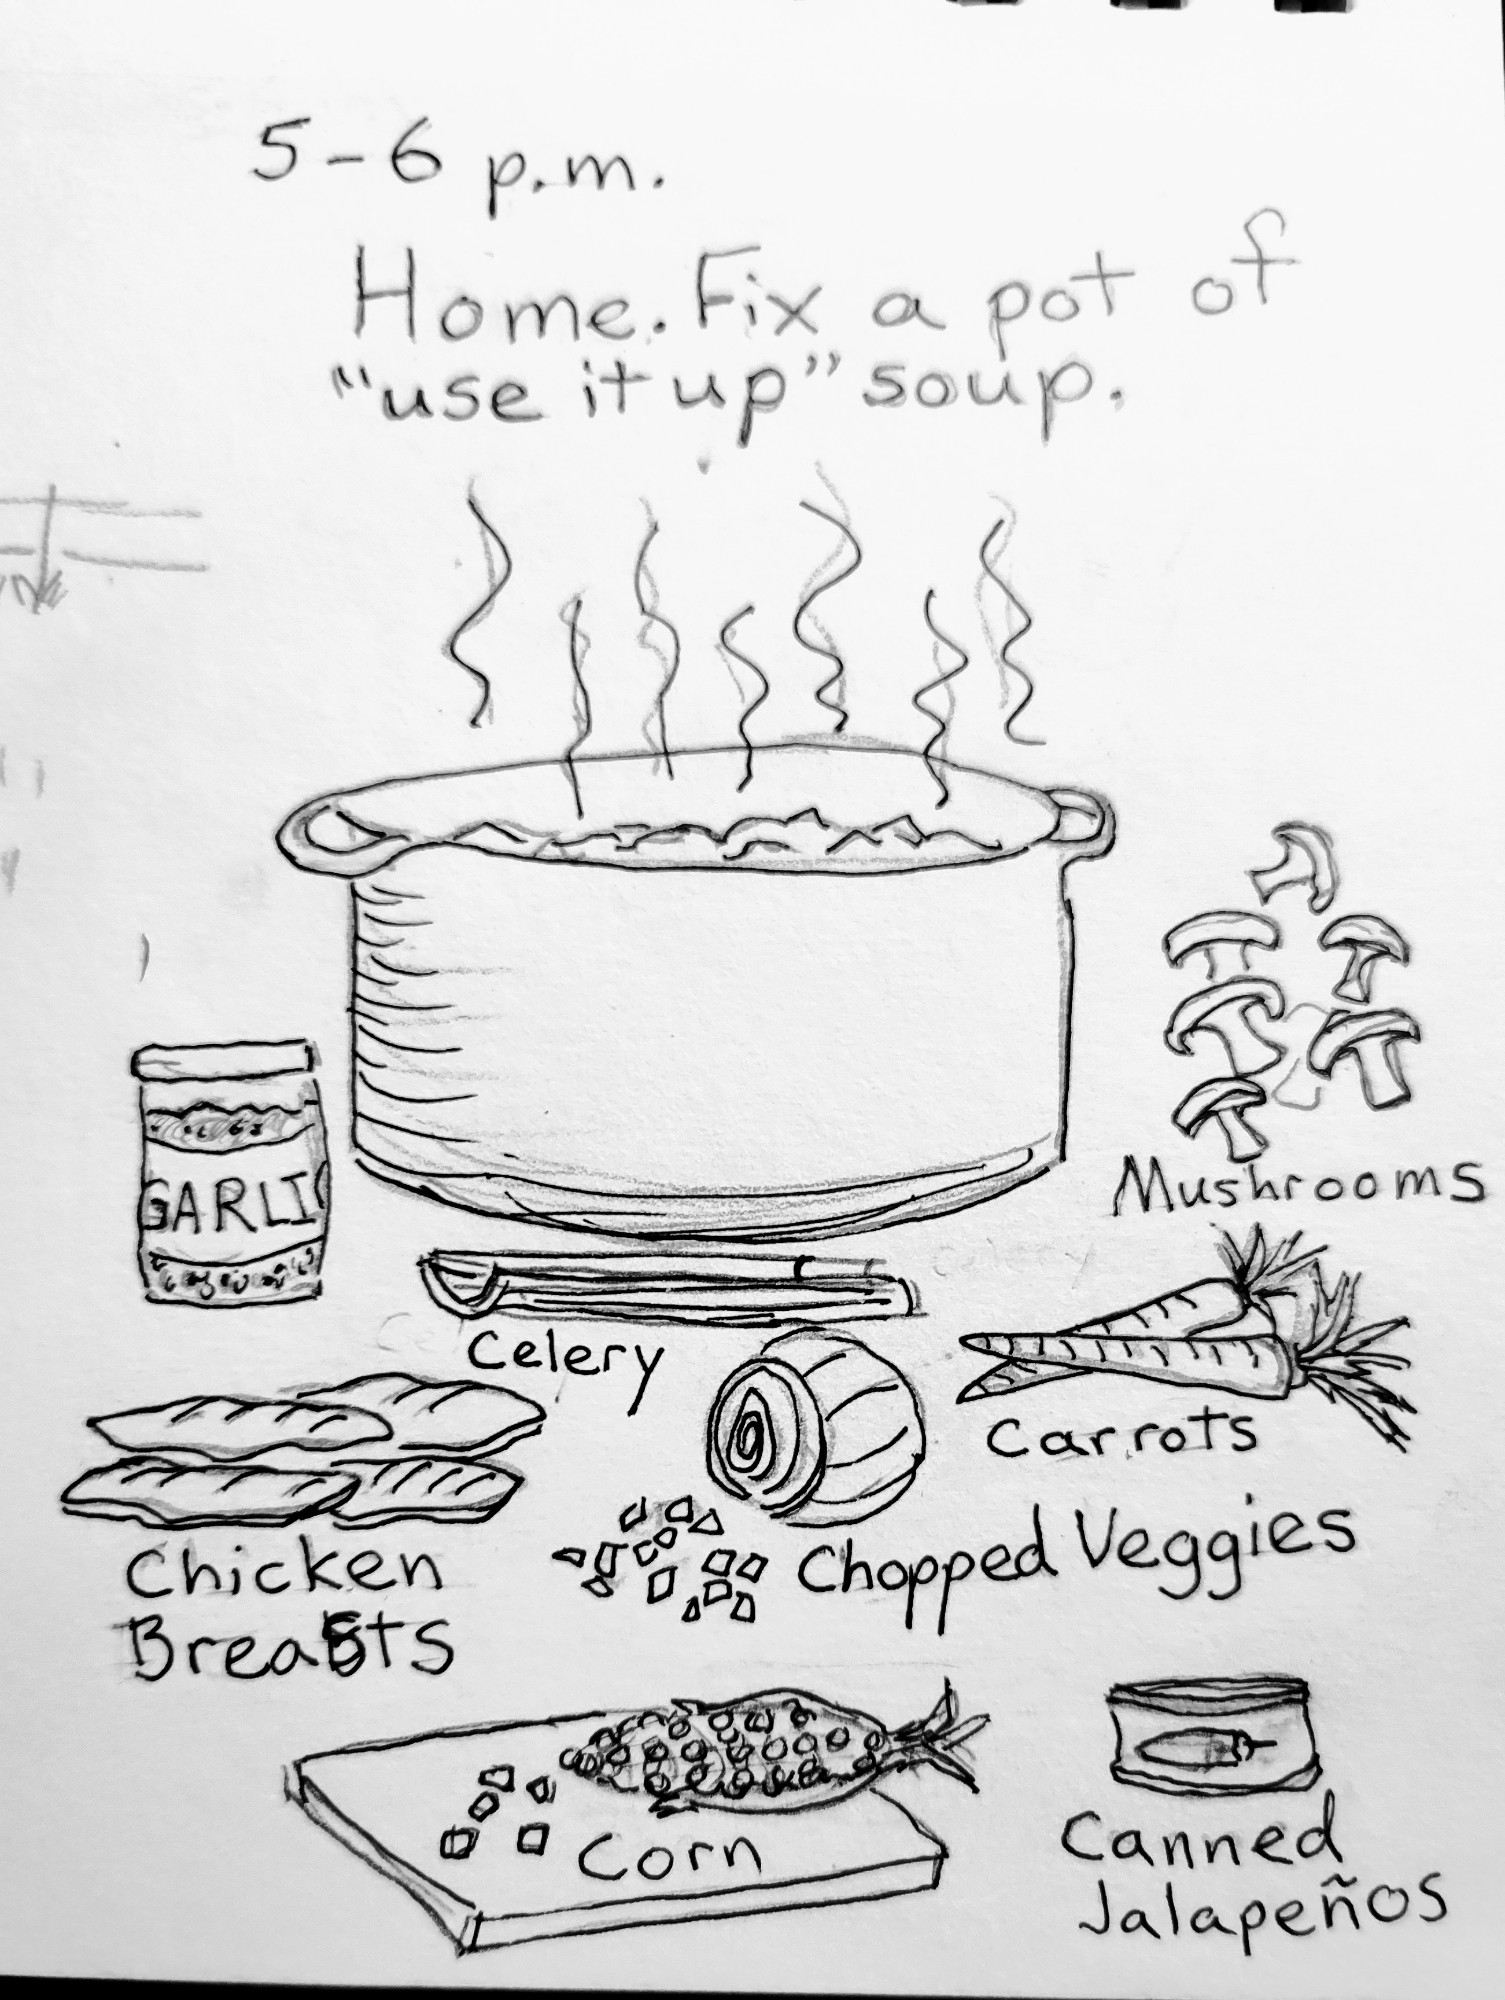 5-6 p.m.
Home. Fix a pot of
"use it up" soup.
GARLIC
Mushrooms
Celery
Carrots
Chicken
Breasts
Chopped Veggies
Corn
Canned
Jalapeños